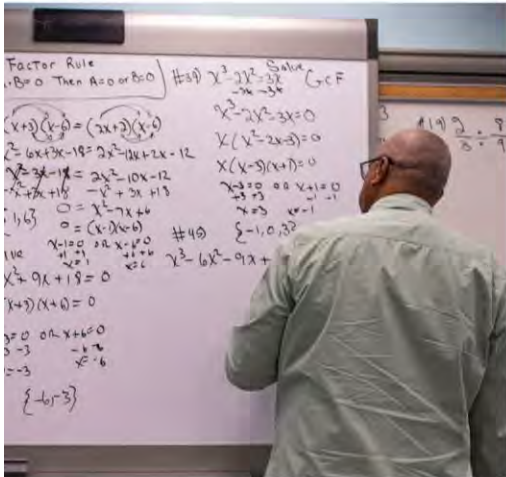 Factor Rule
·B=0 Then A=0 or B=0
(x+3)(x-6)=(2x+2)(x-6)
x²-6x+3x-18=2x²-12x+2x-12
x²-3x-18=2x²-10x-12
-x²+3x+18 -x²+3x+18
1,6} 0=x²-7x+6
0=(x-1)(x-6)
x-1=0 or x-6=0
+1 +1 +6+6
x=1 x=6
x²+9x+18=0
(x+3)(x+6)=0
3=0 or x+6=0
-3 -6
=-3 x=-6
{-6,-3}
#39) x³-2x²=3x Solve GCF
-3x -3x
x³-2x²-3x=0
x(x²-2x-3)=0
x(x-3)(x+1)=0
x-3=0 or x+1=0
+3 +3 -1 -1
x=3 x=-1
{-1,0,3}
#45)
x³-6x²-9x+
3
#19) 2 ÷ 8
3 9